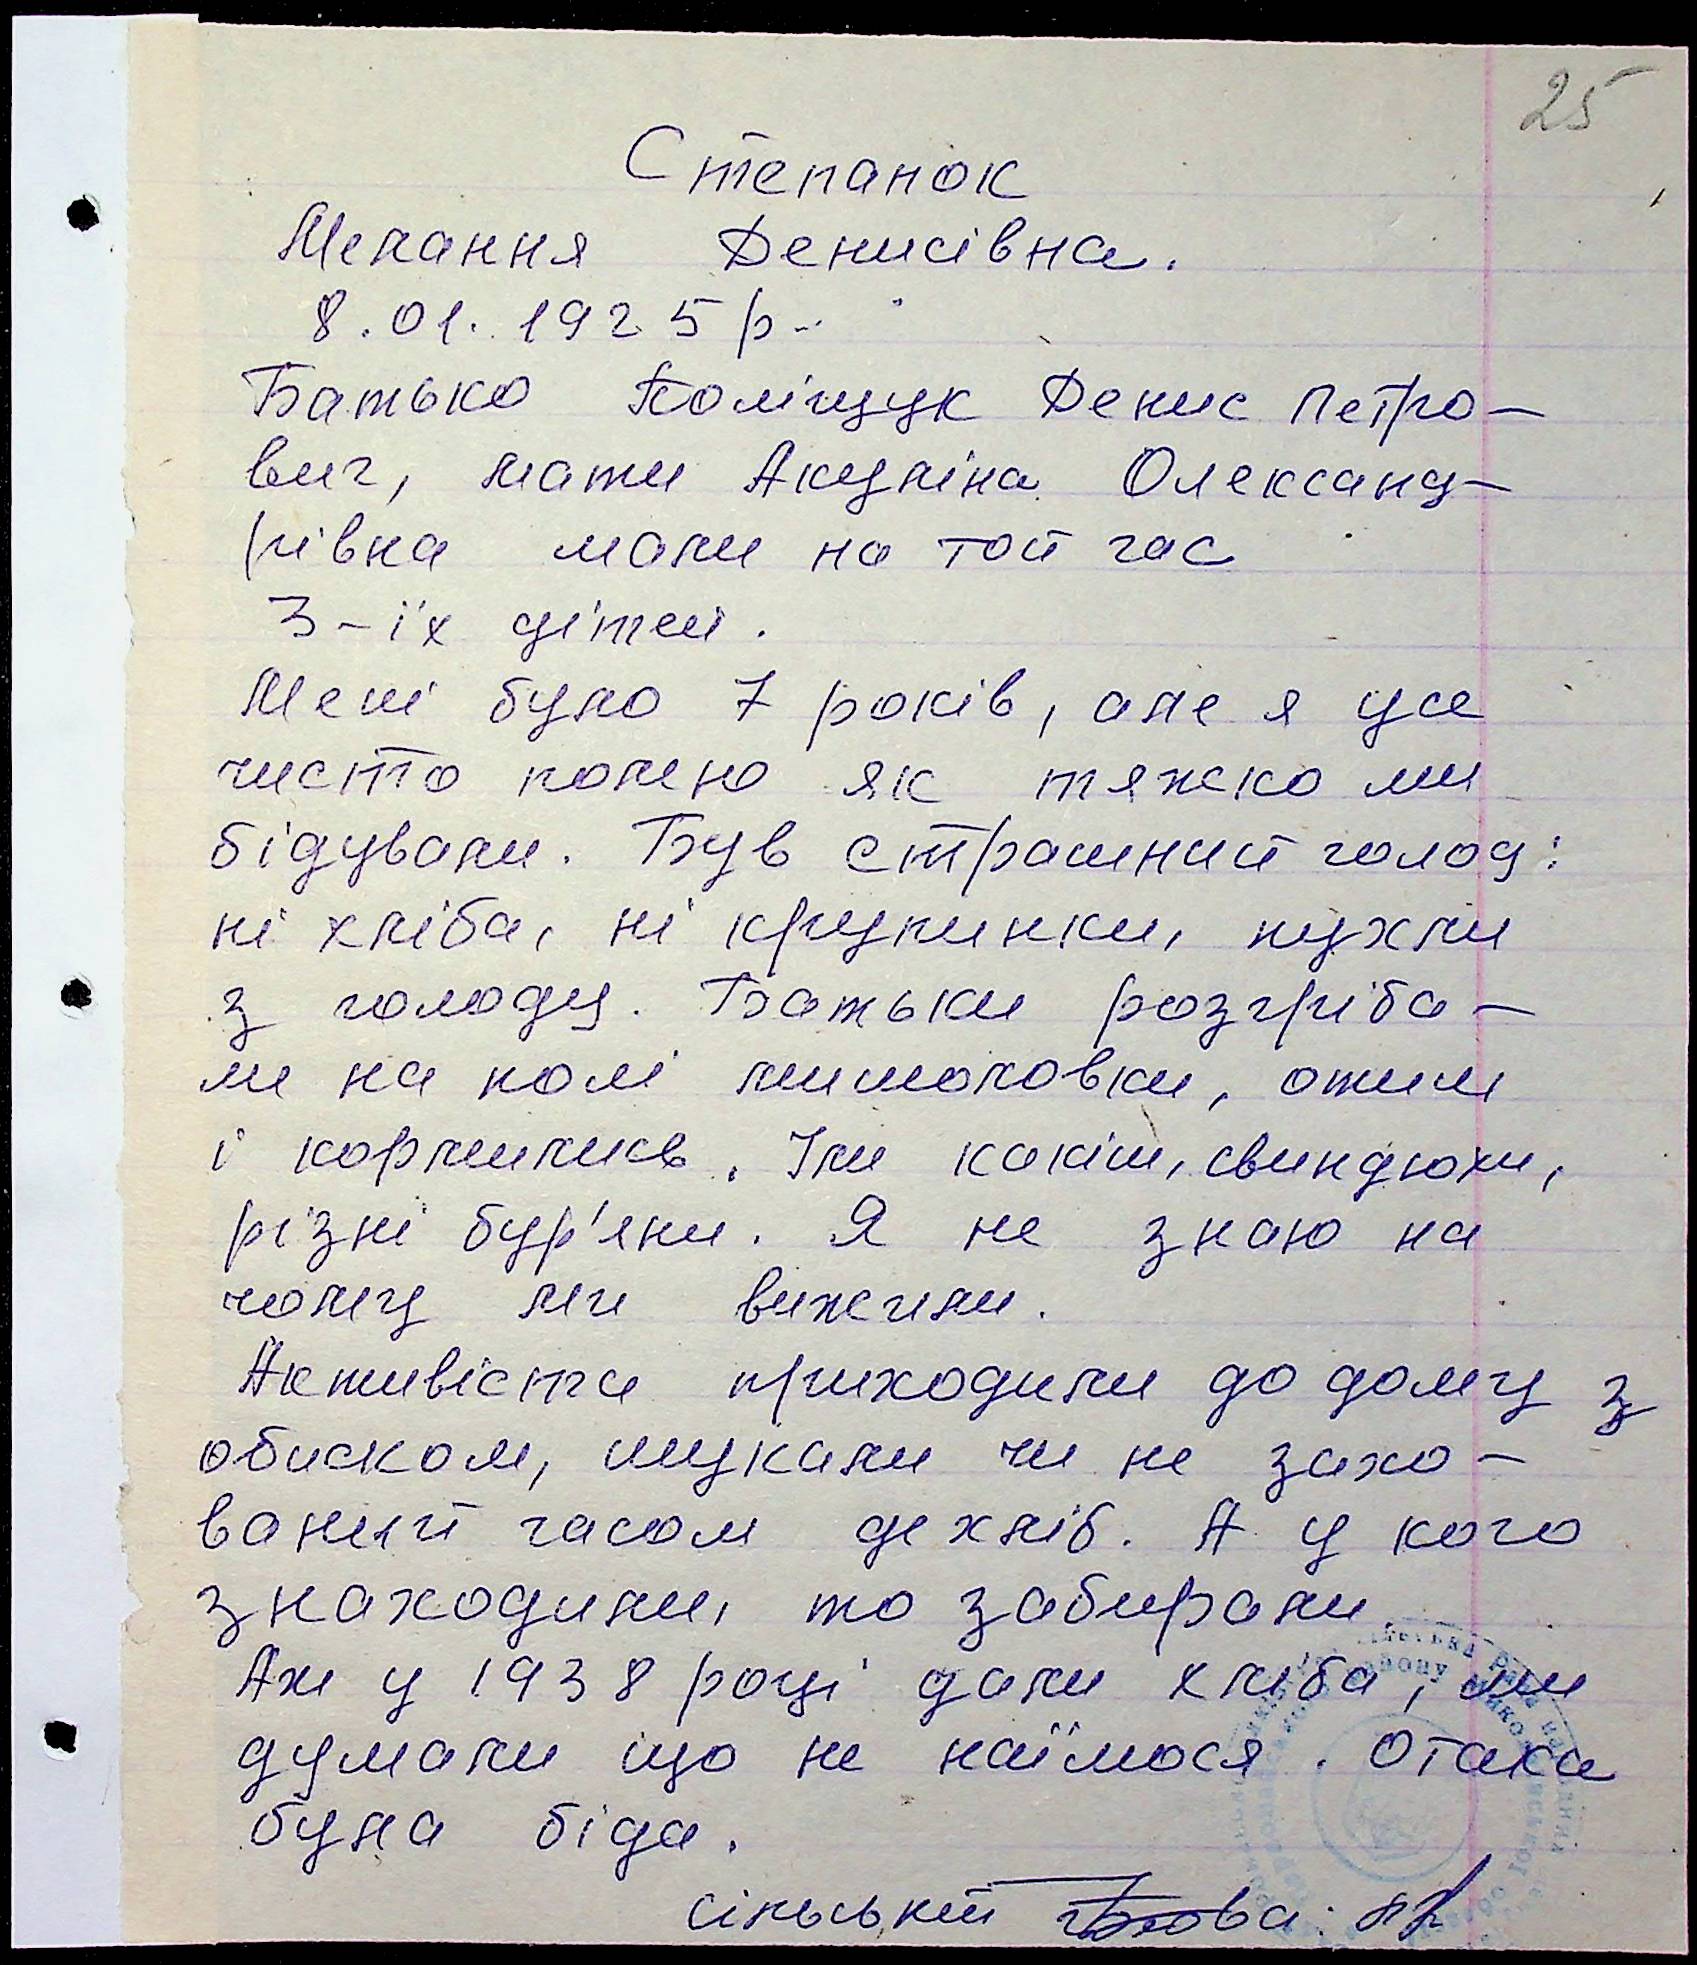 25
Степанок
Мелання Денисівна.
8.01.1925р.
Батько Поліщук Денис Петро-
вич, мати Акуліна Олександ-
рівна мали на той час
3-їх дітей.
Мені було 7 років, але я усе
чисто помню як тяжко ми
бідували. Був страшний голод:
ні хліба, ні крупинки, пухли
з голоду. Батьки розгріба-
ли на полі мишоловки, отим
і кормились. Їли калачи, свиндюхи,
різні бур'яни. Я не знаю на
чому ми вижили.
Активісти приходили до дому з
обиском, шукали чи не захо-
ваний часом де хліб. А у кого
знаходили, то забирали.
Аж у 1938 році дали хліба, ми
думали що не наїмося. Отака
була біда.
сільський голова: